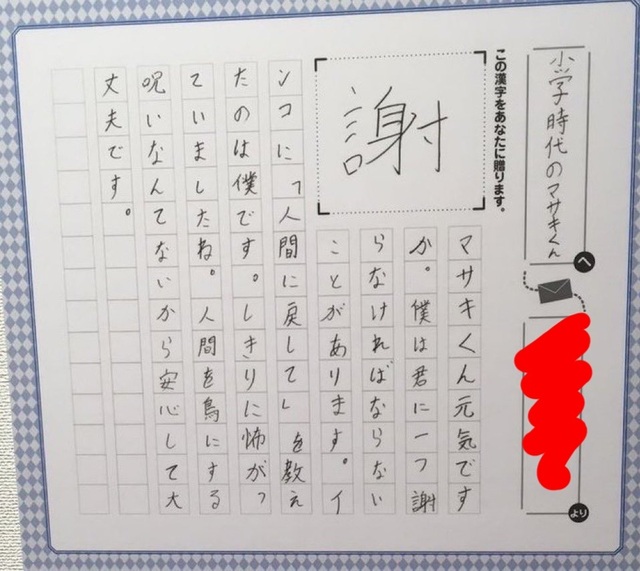 小学時代のマサキくん
へ
より
この漢字をあなたに贈ります。
謝
マサキくん元気です
か。僕は君に一つ謝
らなければならない
ことがあります。イ
ンコに「人間に戻して」を教え
たのは僕です。しきりに怖がっ
ていましたね。人間を鳥にする
呪いなんてないから安心して大
丈夫です。